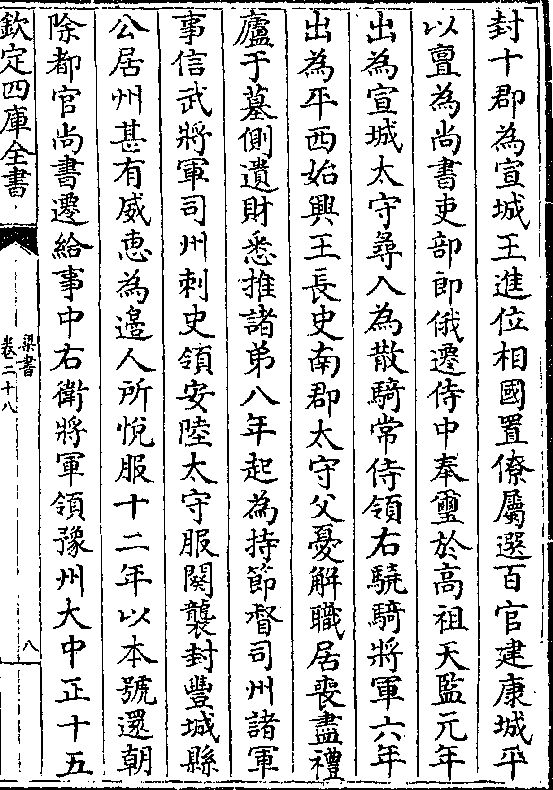 封十郡為宣城王進位相國置僚屬選百官建康城平
以亶為尚書吏部郎俄遷侍中奉璽於高祖天監元年
出為宣城太守尋入為散騎常侍領右驍騎將軍六年
出為平西始興王長史南郡太守父憂解職居喪盡禮
廬于墓側遺財悉推諸弟八年起為持節督司州諸軍
事信武將軍司州刺史領安陸太守服闋襲封豐城縣
公居州甚有威惠為邉人所悅服十二年以本號還朝
除都官尚書遷給事中右衛將軍領豫州大中正十五
欽定四庫全書
梁書
卷二十八
八